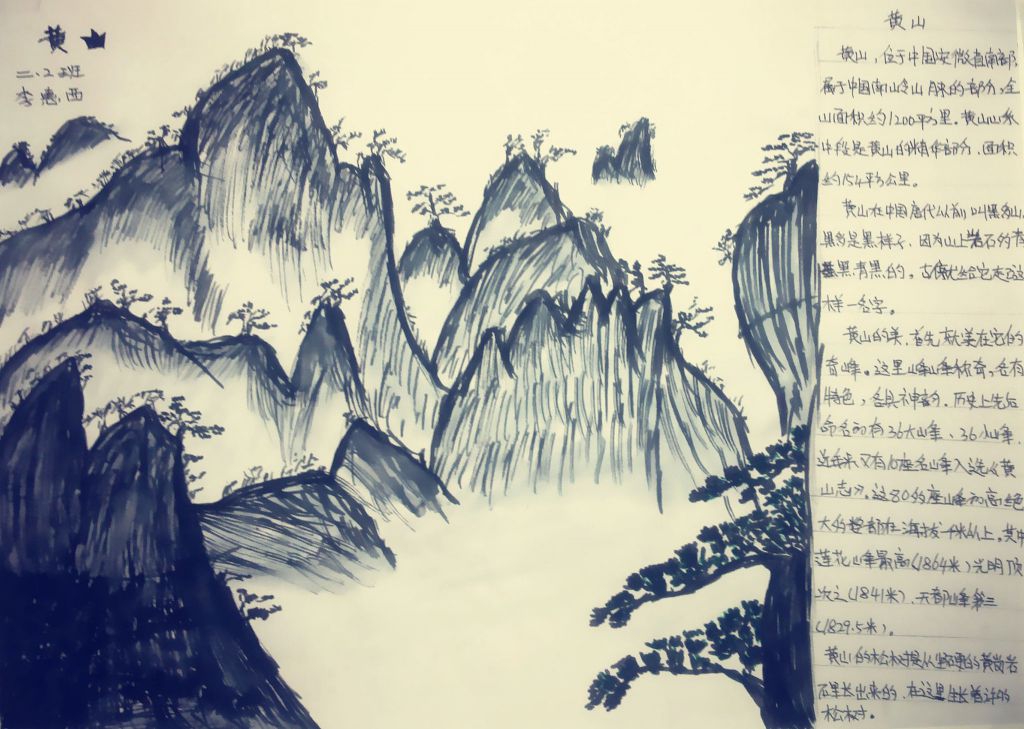 黄山
二.2班
李惠西
黄山
黄山，位于中国安微省南部，
属于中国南山岭山脉的部分，全
山面积约1200平方里。黄山山系
中段是黄山的精华部分，面积
约154平方公里。
黄山在中国唐代以前叫黑多山，
黑多是黑样子，因为山上岩石的青
黑，青黑的。古代就给它起这
样一名字。
黄山的美，首先就美在它的
奇峰。这里山峰山峰称奇，各有
特色，各具神韵。历史上先后
命名的有36大山峰、36小山峰，
近年来又有10座名山峰入选《黄
山志》。这80的座山峰的高绝
大的都在海拔一千米以上。其中
莲花山峰最高(1864米)光明顶
次之(1841米)，天都山峰第三
(1829.5米)。
黄山的松树提从坚硬的黄岗岩
石里长出来的，在这里生长着许的
松树。